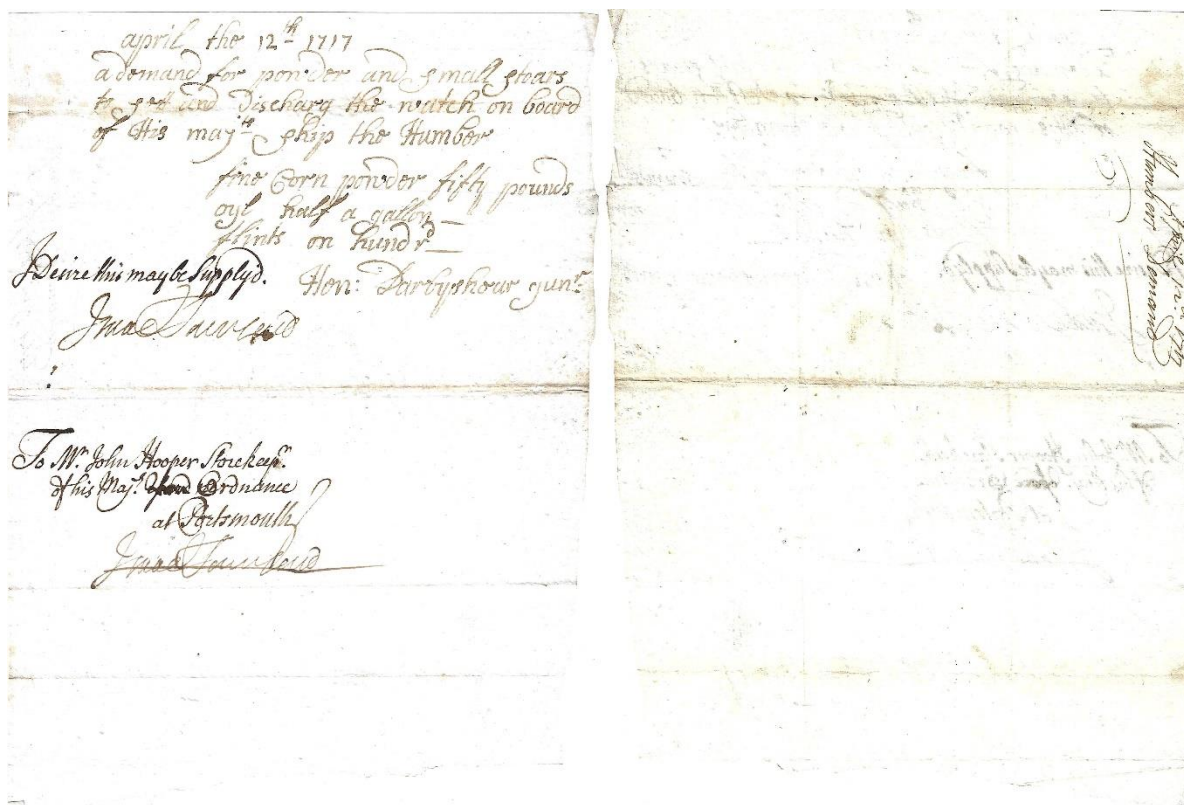 april the 12th 1717
a demand for powder and small stoars
to sett and Discharg the watch on board
of His majts ship the Humber
fine Corn powder fifty pounds
oyl half a gallon
flints on hundrd
I Desire this may be Supply'd.
Hen: Darbyshear gunr
Isaac Townsend
To Mr. John Hooper Storekeepr.
of his Majs. Ordnance
at Portsmouth
Isaac Townsend
Humber Demand
April 12th 1717